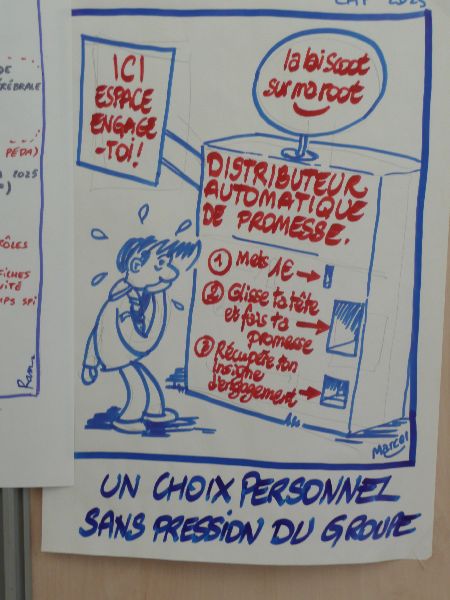 CAP 2025
ICI
ESPACE
ENGAGE
-TOI!
la loi scoot
sur ma root
DISTRIBUTEUR
AUTOMATIQUE
DE PROMESSE.
1 Mets 1€
2 Glisse ta tête
et fais ta
promesse
3 Récupère ton
insigne
d'engagement
Marcel
UN CHOIX PERSONNEL
SANS PRESSION DU GROUPE
DE
ÉRÉBRALE
PÉDA)
2025
RÔLES
FICHES
VITÉ
MPS SPI